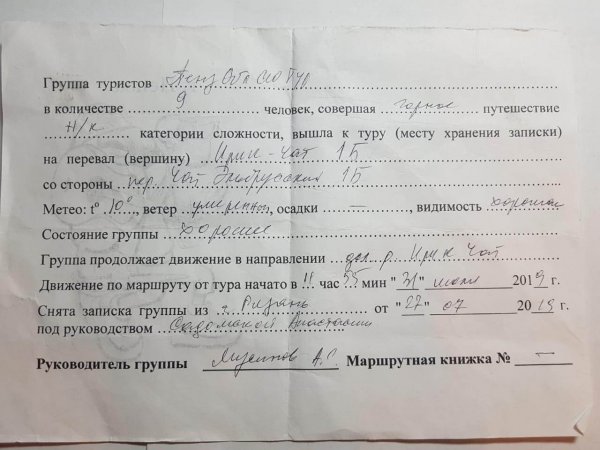 Группа туристов ПензОблСЮТур
в количестве 9 человек, совершая горное путешествие
Н/к категории сложности, вышла к туру (месту хранения записки)
на перевал (вершину) Ирик-Чат 1Б
со стороны пер. Чат Эльбрусский 1Б
Метео: t° 10°, ветер умеренный, осадки —, видимость хорошая
Состояние группы хорошее
Группа продолжает движение в направлении дол. р. Ирик Чат
Движение по маршруту от тура начато в 11 час 35 мин "31" июля 2019 г.
Снята записка группы из г. Рязань от "27" 07 2019 г.
под руководством Анастасии
Руководитель группы А.С. Маршрутная книжка № —